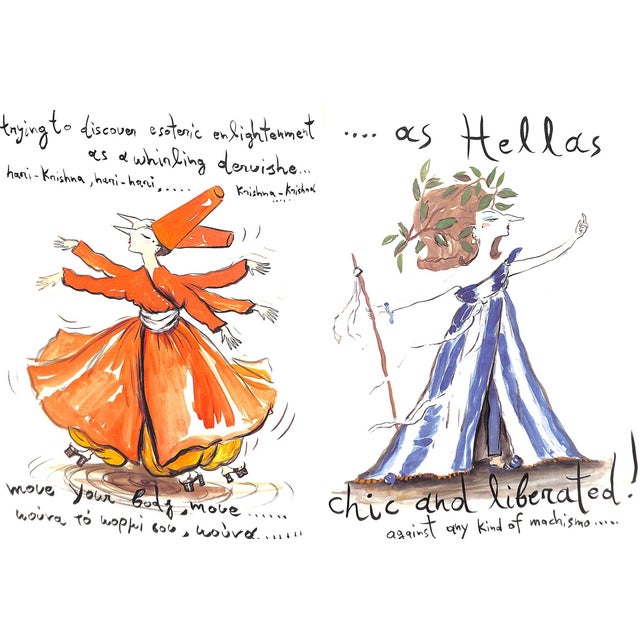 trying to discover esoteric enlightenment
as a whirling dervishe...
hari-Krishna, hari-hari,.....
Krishna-Krishna
.....
move your body, move......
κούνα τό κορμί σου, κούνα.......
.... as Hellas
chic and liberated!
against any kind of machismo.....